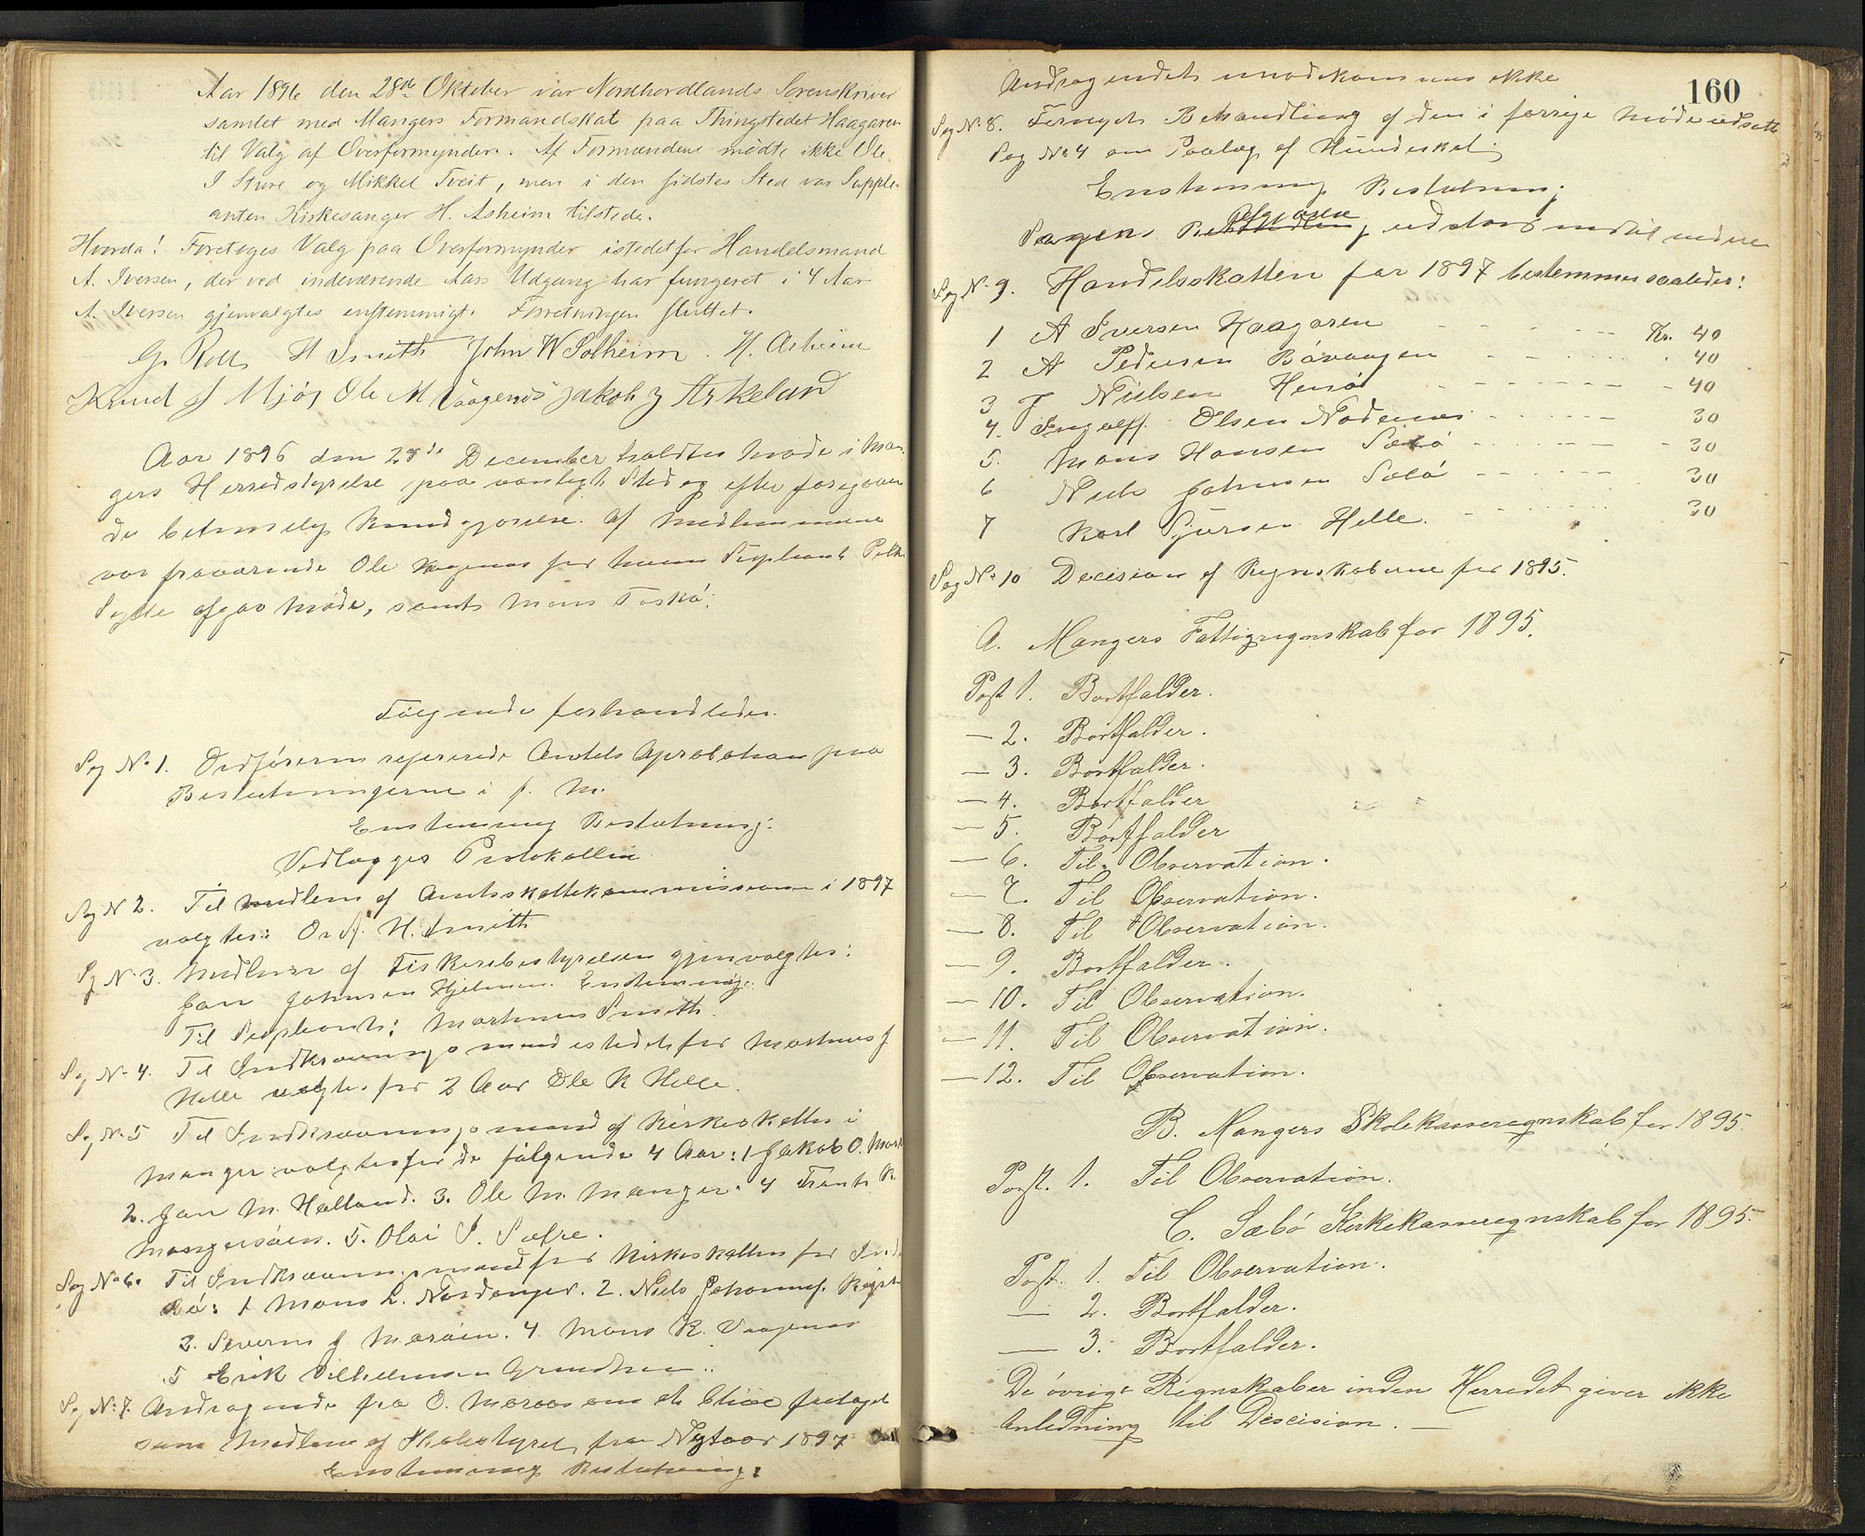 Aar 1896 den 28de Oktober var Nordhordlands Sorenskriver
samlet med Mangers Formandskab paa Thingstedet Haagaren
til Valg af Overformynder. Af Formændene mødte ikke Ole
I Sture og Mikkel Tveit, men i den sidstes Sted var Supple-
anten Kirkesanger H. Asheim tilstede.
Hvorda! Foretoges Valg paa Overformynder istedetfor Handelsmand
A. Iversen, der ved indeværende Aars Udgang har fungeret i 4 Aar
A. Iversen gjenvalgtes enstemmigt. Forretningen sluttet.
G. Roll H Smith John W Solheim. H. Asheim
Knud J Mjøs Ole M Vaagenes Jakob J Askeland
Aar 1896 den 28de December holdtes Møde i Man-
gers Herredstyrelse paa vanligt Sted og efter foregaaen
de betimelig Kundgjørelse. Af Medlemmerne
var fraværende Ole Vaagenes for hvem Supleant
afgav Møde, samt Mons Toskø.
Følgende forhandledes.
Sag No 1. Ordføreren refererede Amtets Aprobation paa
Beslutningerne i f. M.
Enstemmig Beslutning:
Vedlægges Protokollen
Sag N 2. Til Medlem af Amtsskattekommissionen i 1897
valgtes: Ordf. H. Smith
Sag No 3. Medlem af Fiskeribestyrelsen gjenvalgtes:
Jan Johnsen Hjelmen. Enstemmig.
Til Supleant: Martinus Smith.
Sag No 4. Til Indkrævningsmand istedetfor Martinus J
Helle valgtes for 2 Aar Ole R Helle.
Sag No 5 Til Indkrævningsmænd af Kirkeskatten i
Manger valgtes for de følgende 4 Aar: 1 Jakob O.
2. Jan M. Halland. 3. Ole M. Manger. 4
Mangersøien. 5. Olai I. Sætre.
Sag No 6. Til Indkrævningsmænd for Kirkeskatten for
bø: 1 Mons L. Nordanger. 2. Niels Johannes.
3. Severin J Marøen. 4. Mons K. Vaagenes
5 Erik Vilhelmsen
Sag No 7. Andragende fra O. Maraas om at blive fritaget
som Medlem af Skolestyret fra Nytaar 1897
Enstemmig Beslutning:
160
Andragendet imødekommes ikke
Sag No 8. Fornyet Behandling af den i forrige Møde udsatte
Sag No 4 om Paalæg af Hundeskat.
Enstemmig Beslutning:
Afgjørelse
Sagens Behandling udstaar indtil videre
Sag No 9. Handelsskatten for 1897 bestemmes saaledes:
1 A Iversen Haagaren Kr. 40
2 A Pedersen Bøvaagen " 40
3 J Nielsen Hernø - 40
4. Ingolf. Olsen Nødenes 30
5. Mons Hansen Sæbø - 30
6 Niels Johnsen Sæbø 30
7 Karl Sjursen Helle. 30
Sag No 10 Decision af Regnskaberne for 1895.
A. Mangers Fattigregnskab for 1895.
Post 1. Bortfalder.
— 2. Bortfalder.
— 3. Bortfalder.
— 4. Bortfalder
— 5. Bortfalder
— 6. Til Observation.
— 7. Til Observation.
— 8. Til Observation.
— 9. Bortfalder.
— 10. Til Observation.
— 11. Til Observation.
— 12. Til Observation.
B. Mangers Skolekasseregnskab for 1895.
Post. 1. Til Observation.
C. Sæbø Kirkekasseregnskab for 1895.
Post. 1. Til Observation.
— 2. Bortfalder.
— 3. Bortfalder.
De øvrige Regnskaber inden Herredet giver ikke
Anledning til Descision. —